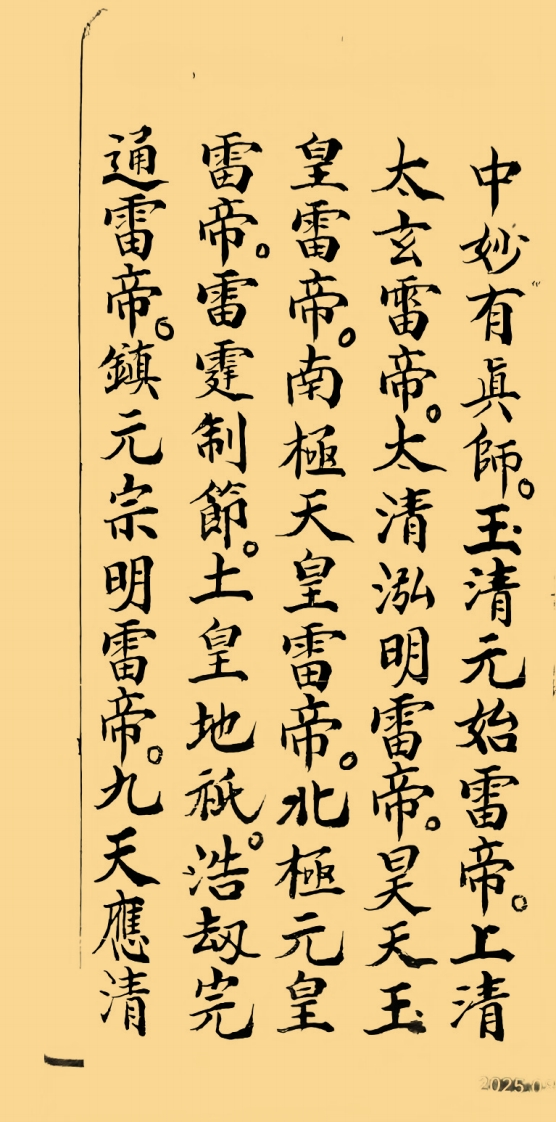 中妙有眞師。玉清元始雷帝。上清
太玄雷帝。太清泓明雷帝。昊天玉
皇雷帝。南極天皇雷帝。北極元皇
雷帝。雷霆制節。土皇地祇。浩劫完
通雷帝。鎮元宗明雷帝。九天應清